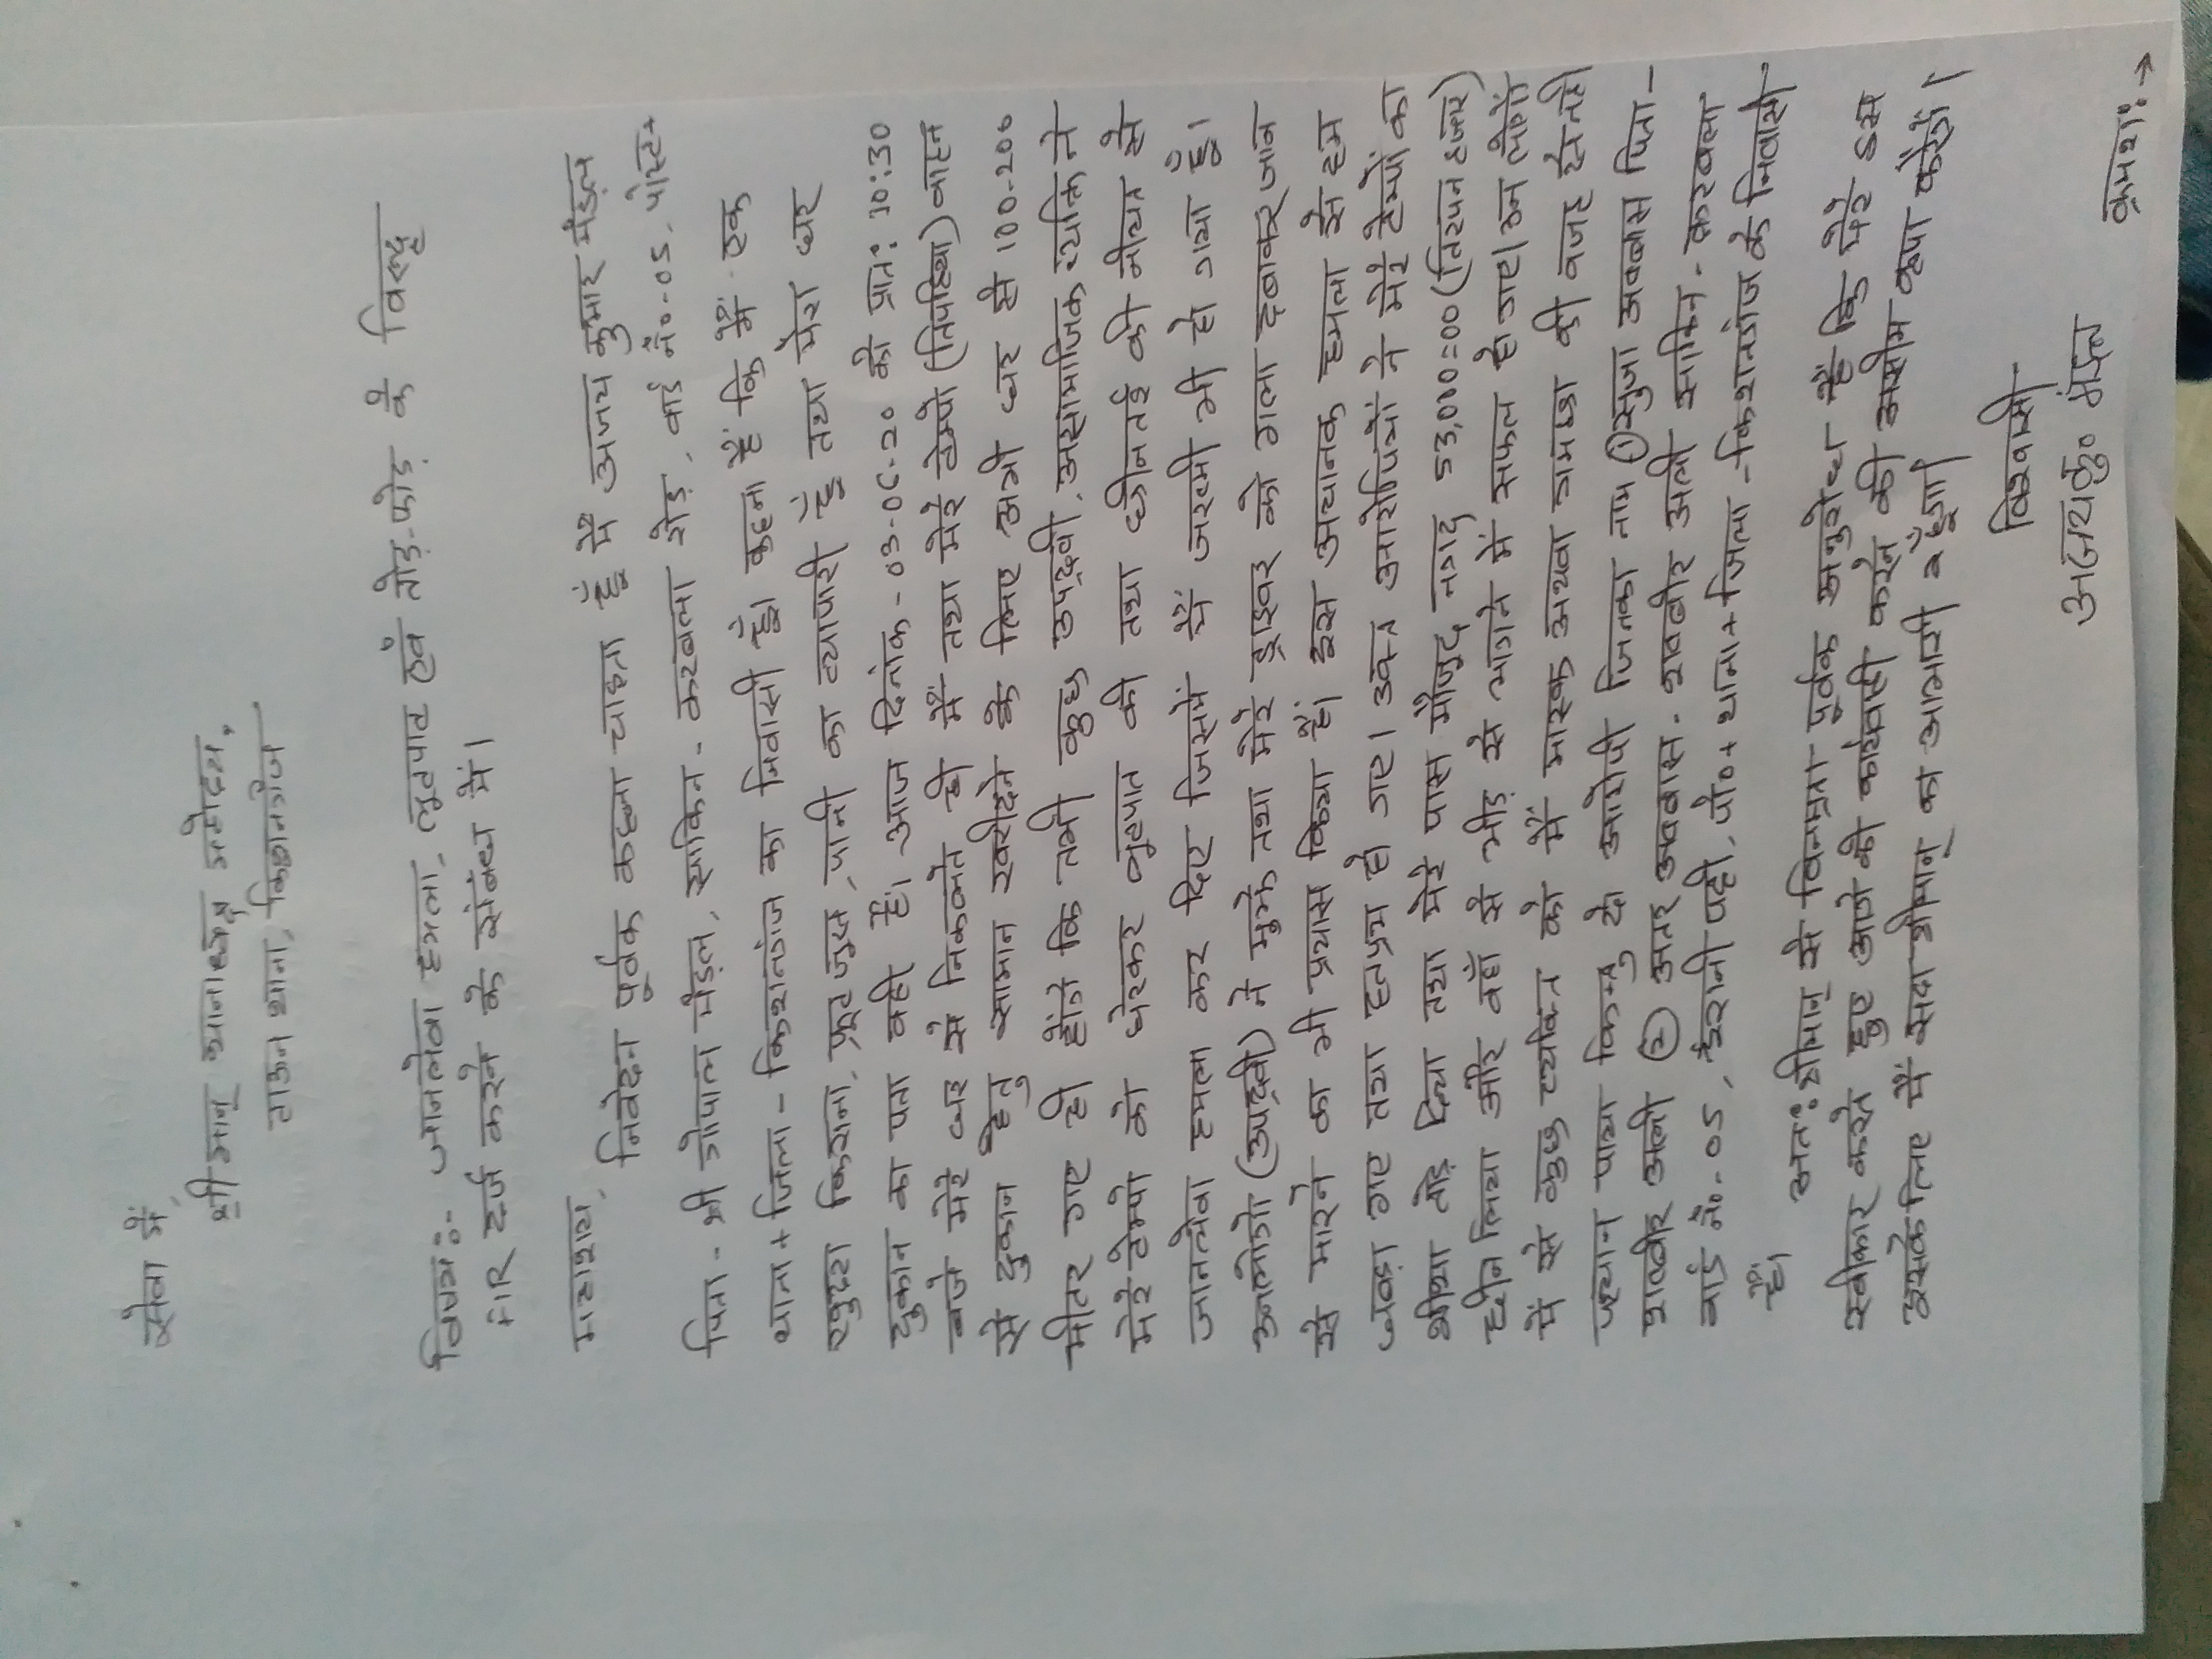 सेवा में,
श्रीमान् थानाध्यक्ष महोदय,
टाऊन थाना, किशनगंज
विषय:- जानलेवा हमला, लूटपाट एवं तोड़-फोड़ के विरूद्ध
FIR दर्ज करने के संबंध में।
महाशय,
निवेदन पूर्वक कहना चाहता हूँ मैं अजय कुमार मंडल
पिता - श्री गोपाल मंडल, साकिन - करबला रोड़, वार्ड नं०-05, पोस्ट+
थाना + जिला - किशनगंज का निवासी हूँ। कहना है कि मैं एक
खुदरा किराना, फ्रूट जूस, पानी का व्यापारी हूँ तथा मेरा घर
दुकान का पता वही है। आज दिनांक - 03-06-20 को प्रात: 10:30
बजे मेरे घर से निकलते ही मैं तथा मेरे टेम्पो (तिपहिया) वाहन
से दुकान हेतु सामान खरीदने के लिए अभी घर से 100-200
मीटर गए ही होंगे कि तभी कुछ उपद्रवी, असामाजिक व्यक्ति ने
मेरे टेम्पो को घेरकर लूटपात की तथा छीनतई की नीयत से
जानलेवा हमला कर दिए जिसमें मैं जख्मी भी हो गया हूँ।
उनलोगो (उपद्रवी) ने मुझे तथा मेरे ड्राइवर को गला दबाकर जान
से मारने का भी प्रयास किया है। इस अचानक हमला से हम
घबड़ा गए तथा हतप्रभ हो गए। उक्त आरोपियों ने मेरे टेम्पों का
शीशा तोड़ दिया तथा मेरे पास मौजूद नगद 53,000=00 (तिरपन हजार)
छीन लिया और वहाँ से भीड़ से भागने में सफल हो गए। उन लोगों
में से कुछ व्यक्ति को मैं मास्क अथवा गमछा की वजह से नही
पहचान पाया किन्तु दो आरोपी जिनका नाम ① सुजा अब्बास पिता -
शब्बीर अली ② अतर अब्बास - शब्बीर अली साकिन - करबला
वार्ड नं०-05, ईरानी पट्टी, पो०+ थाना + जिला - किशनगंज के निवासी
है।
अत: श्रीमान् से विनम्रता पूर्वक अनुरोध है कि मेरे इस
स्वीकार करते हुए आगे की कार्यवाही करने की असीम कृपा करेंगें।
इसके लिए मैं सदा श्रीमान् का आभारी रहूँगा।
विश्वासी
अजय कु० मंडल
क्रमश: →